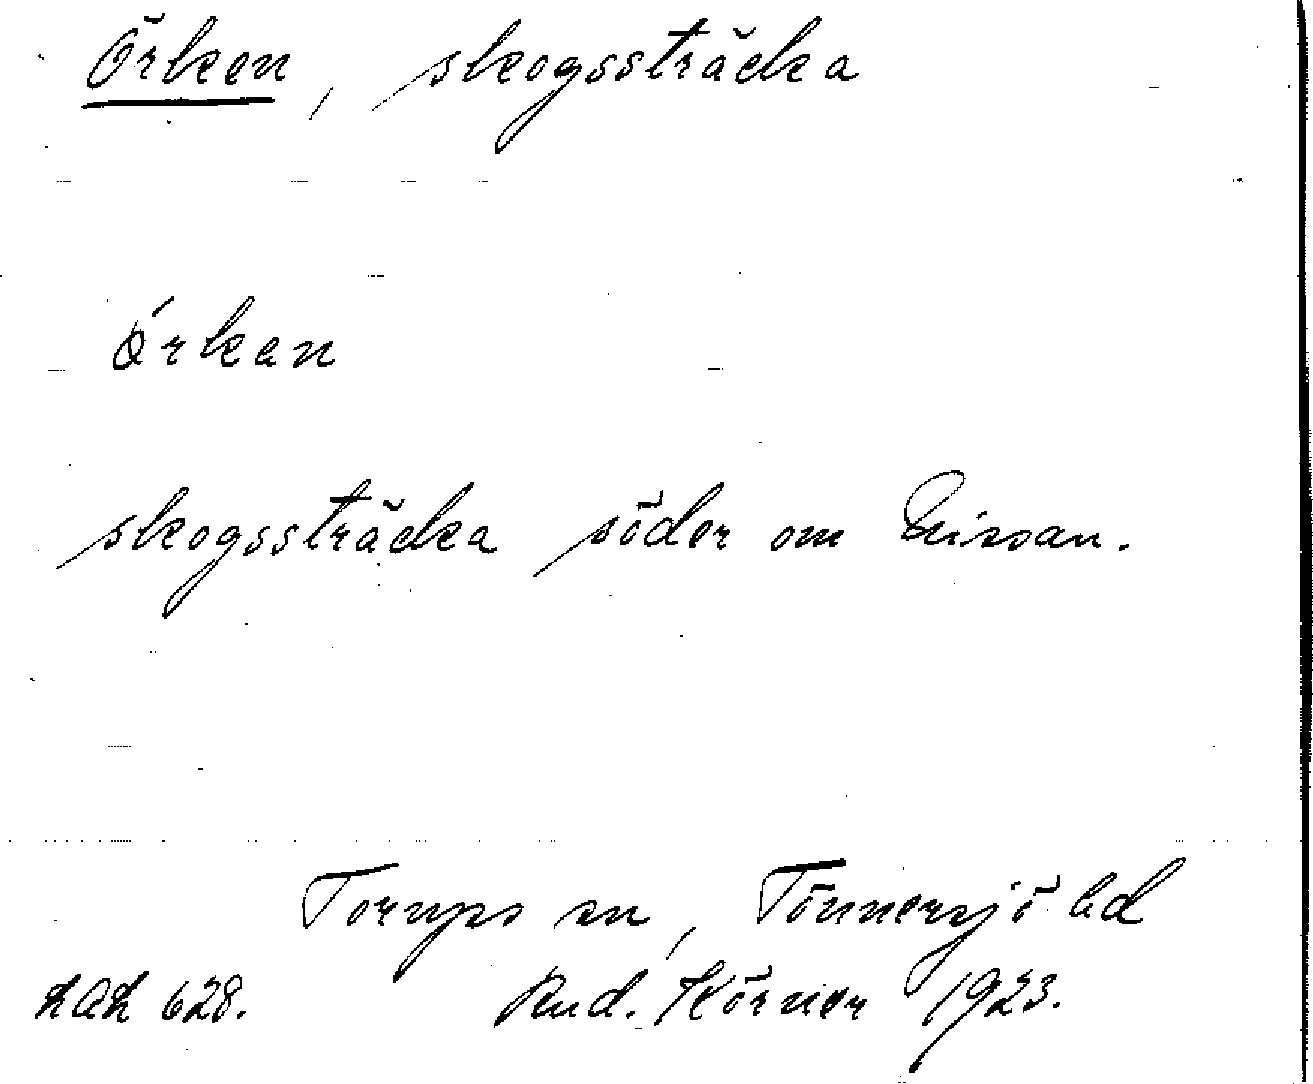 Örken, skogssträcka
Órkan
skogssträcka söder om Nissan.
Torups sn, Tönnersjö hd
LAL 628. Rud. Körner 1923.